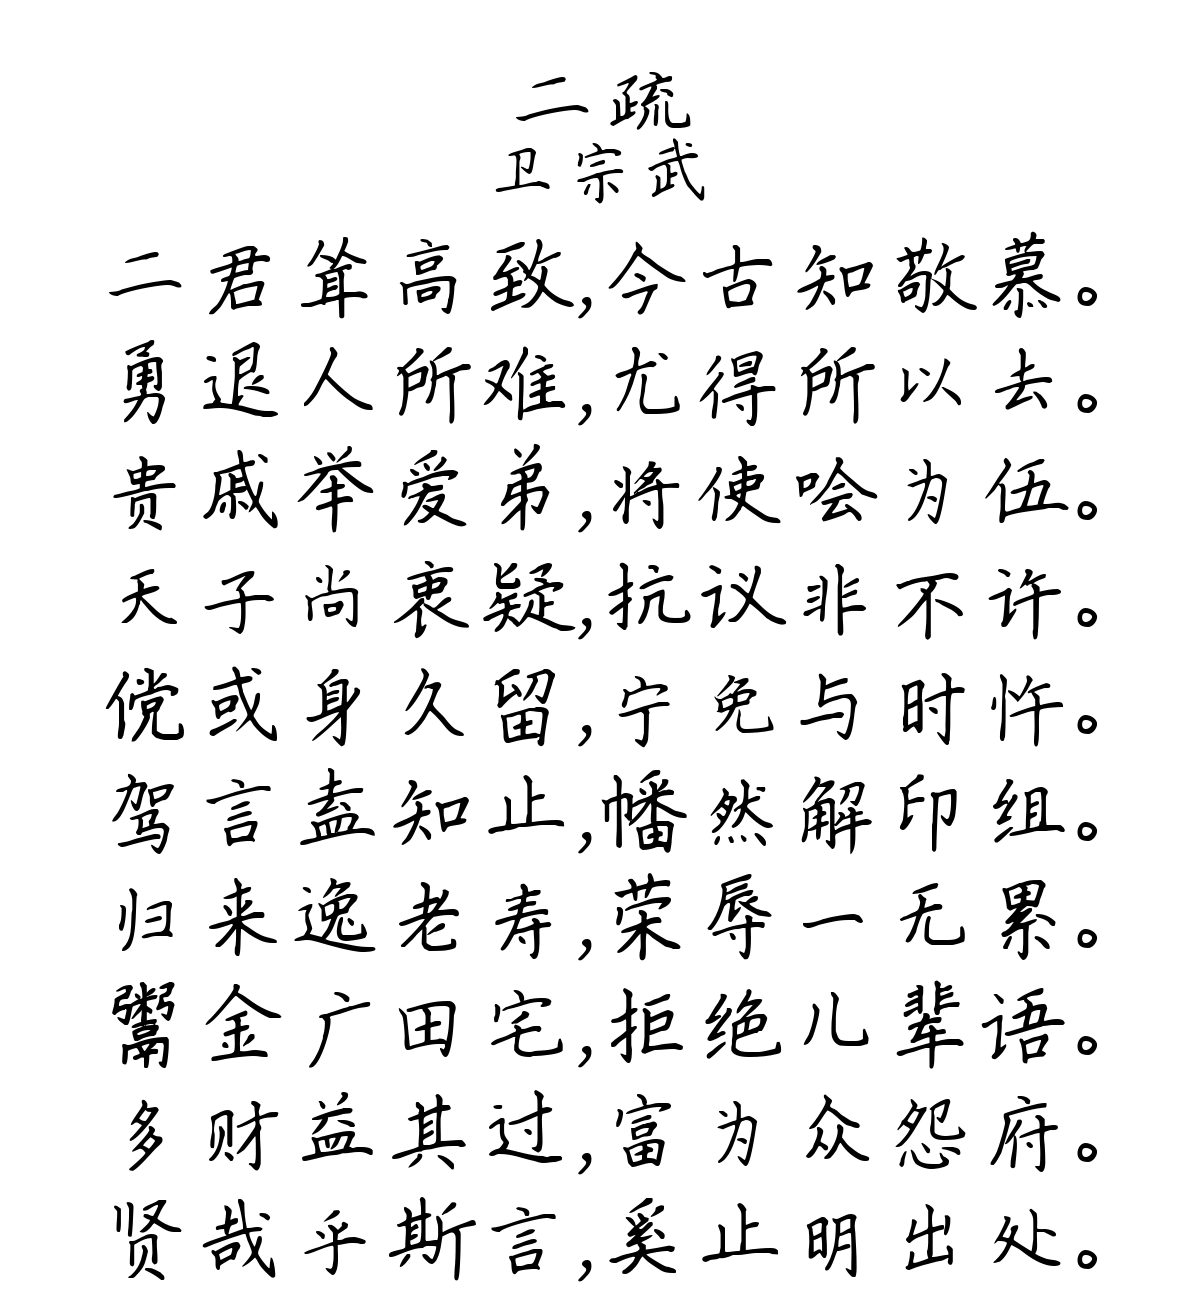 二疏
卫宗武
二君耸高致,今古知敬慕。
勇退人所难,尤得所以去。
贵戚举爱弟,将使哙为伍。
天子尚衷疑,抗议非不许。
傥或身久留,宁免与时忤。
驾言盍知止,幡然解印组。
归来逸老寿,荣辱一无累。
鬻金广田宅,拒绝儿辈语。
多财益其过,富为众怨府。
贤哉乎斯言,奚止明出处。